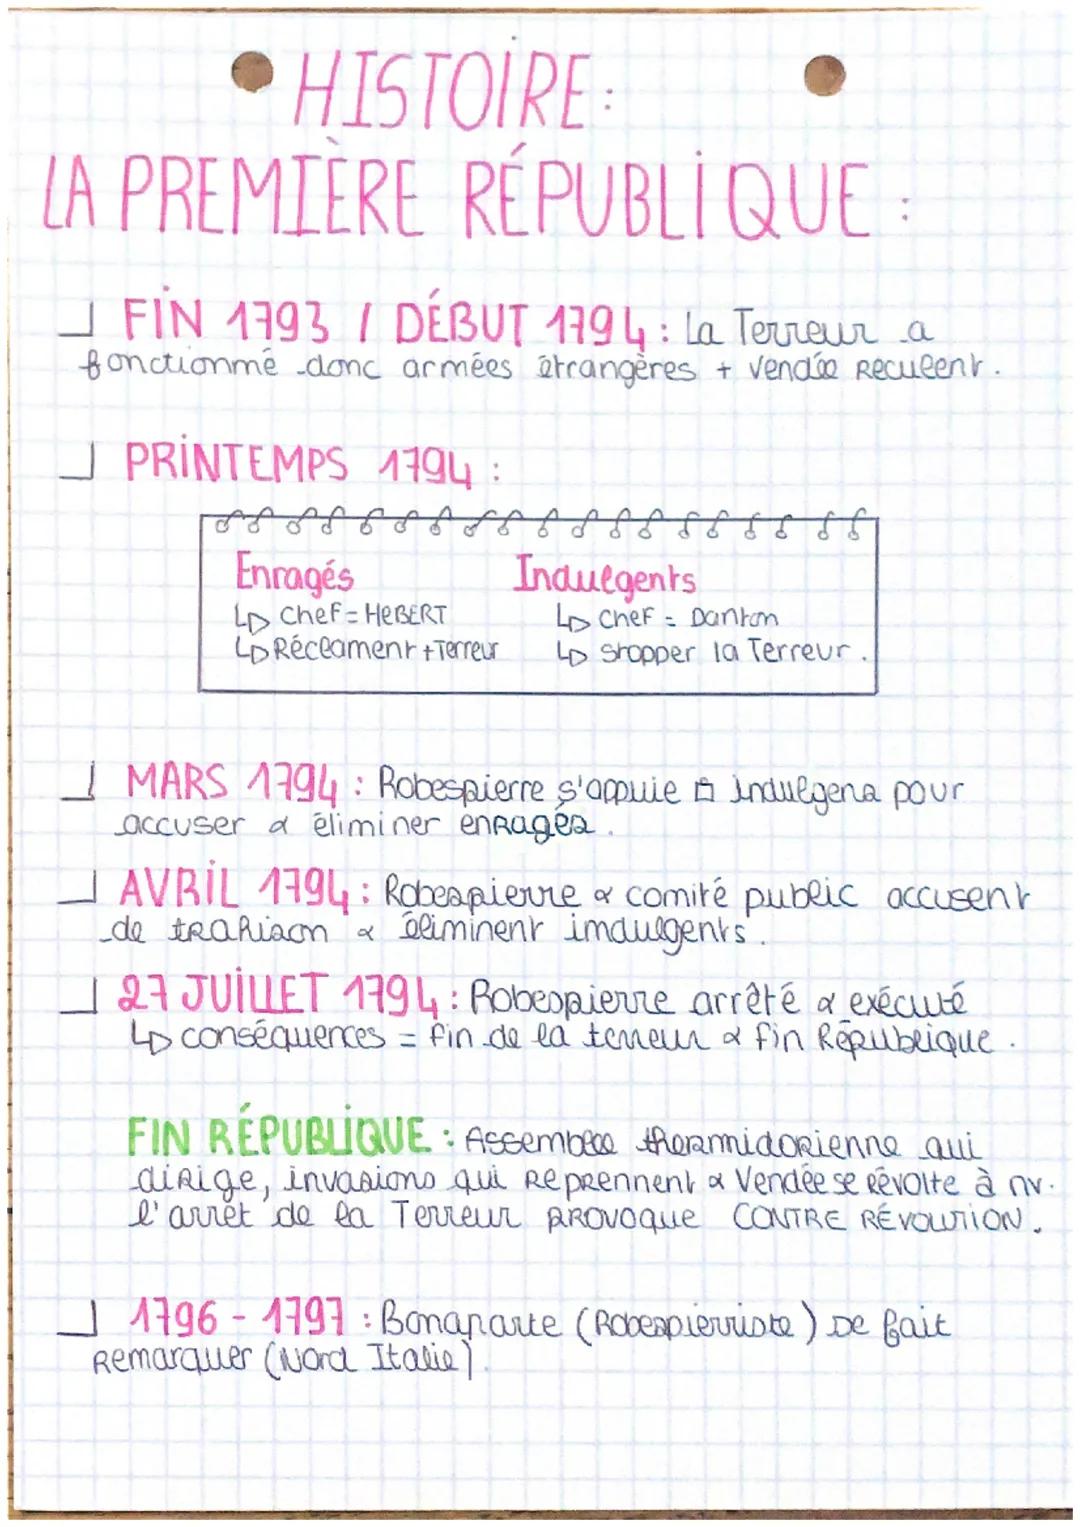 HISTOIRE:
LA PREMIÈRE RÉPUBLIQUE :
FIN 1793 / DÉBUT 1794 : La Terreur a
fonctionmé donc armées étrangères + Vendée Reculent.
PRINTEMPS 1794 :
Enragés Indulgents
↳ Chef = HEBERT ↳ Chef = Danton
↳ Réclament + Terreur ↳ stopper la Terreur.
MARS 1794 : Robespierre s'appuie indulgens pour
accuser & éliminer enRagés.
AVRIL 1794 : Robespierre & comité public accusent
de trahison & éliminent imdulgents.
27 JUILLET 1794 : Robespierre arrêté & exécuté
↳ conséquences = fin de la terreur & fin République.
FIN RÉPUBLIQUE : Assemblee thermidorienne qui
dirige, invasions qui Reprennent & Vendée se Révolte à nv.
l'arrêt de la Terreur PROVOQUE CONTRE RÉVOLUTION.
1796 - 1797 : Bonaparte (Robespierriste) se fait
Remarquer (Nord Italie).